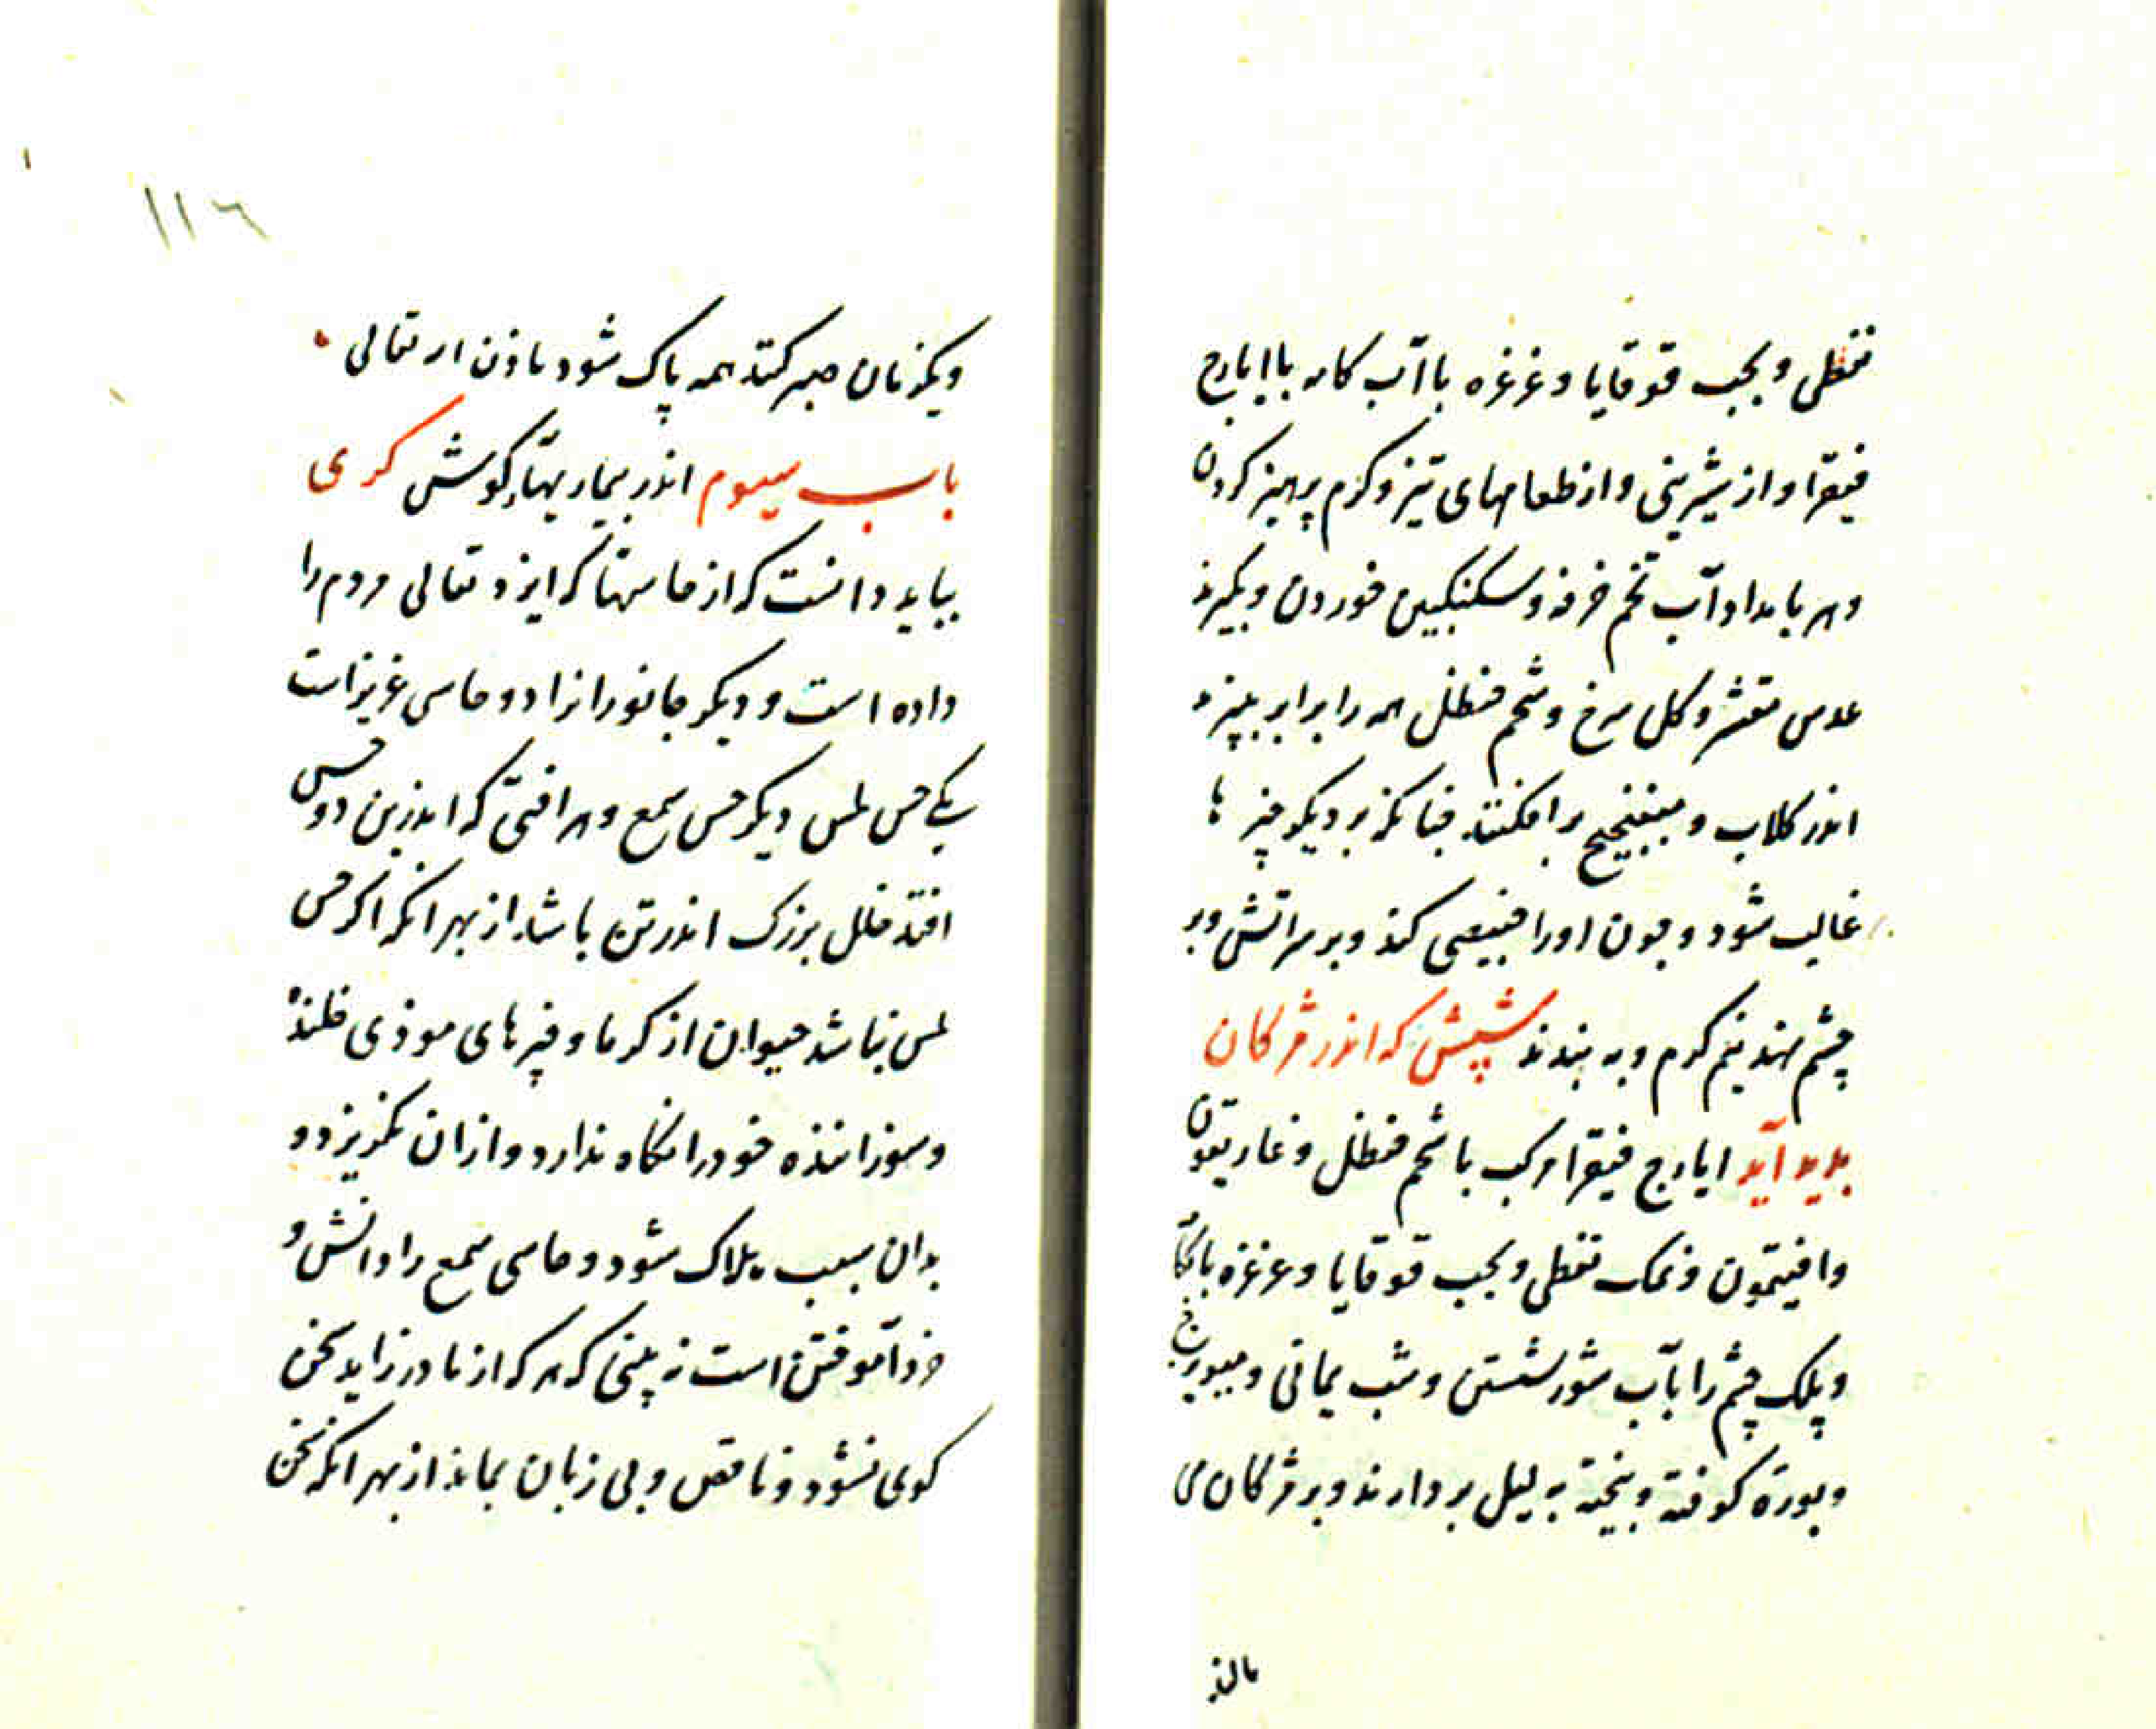 نفطی و بحب قوقایا و غرغره باآب کامه باایارج
فیقرا و از شیرینی و از طعامهای تیز و کرم پرهیز کردن
و هر بامداد آب تخم خرفه و سکنکبین خوردن و بکیرند
عدس مقشر و کل سرخ و شحم حنظل همه را برابر بپزند
اندر کلاب و میفختج برافکنند چنانکه بر دیکر چیز ها
غالب شود و چون اورا خبیصی کند و بر سر اتش و بر
چشم نهند نیم کرم و به بندند شپش که اندر مژکان
بدید آید ایارج فیقرا مرکب با شحم حنظل و غاریقون
و افیتمون و نمک نفطی و بحب قوقایا و غرغره
و پلک چشم را بآب شور شستن و شب یمانی و میویزج
و بوره کوفته و بیخته به لیل بردارند و بر مژکان می
مالند
۱۱۶
و یکزمان صبر کنند همه پاک شود باذن اله تعالی
باب سیوم اندر بیماریهاء کوش کری
بباید دانست که از حاستها که ایزد تعالی مردم را
داده است و دیکر جانورانرا دو حاسی عزیزاست
یکی حس لمس دیکر حس سمع و هر افتی که اندرین دو حس
افتد خلل بزرک اندرتن باشد از بهر انکه اکر حس
لمس نباشد حیوان از کرما و چیزهای موذی خلنده
و سوزاننده خودرا نکاه ندارد و ازان نکریزد و
بدان سبب هلاک شود و حاسی سمع را دانش و
خرد آموختن است نه بینی که هر که از مادر زاید سخن
کوی نشود و ناقص و بی زبان بماند از بهر انکه سخن